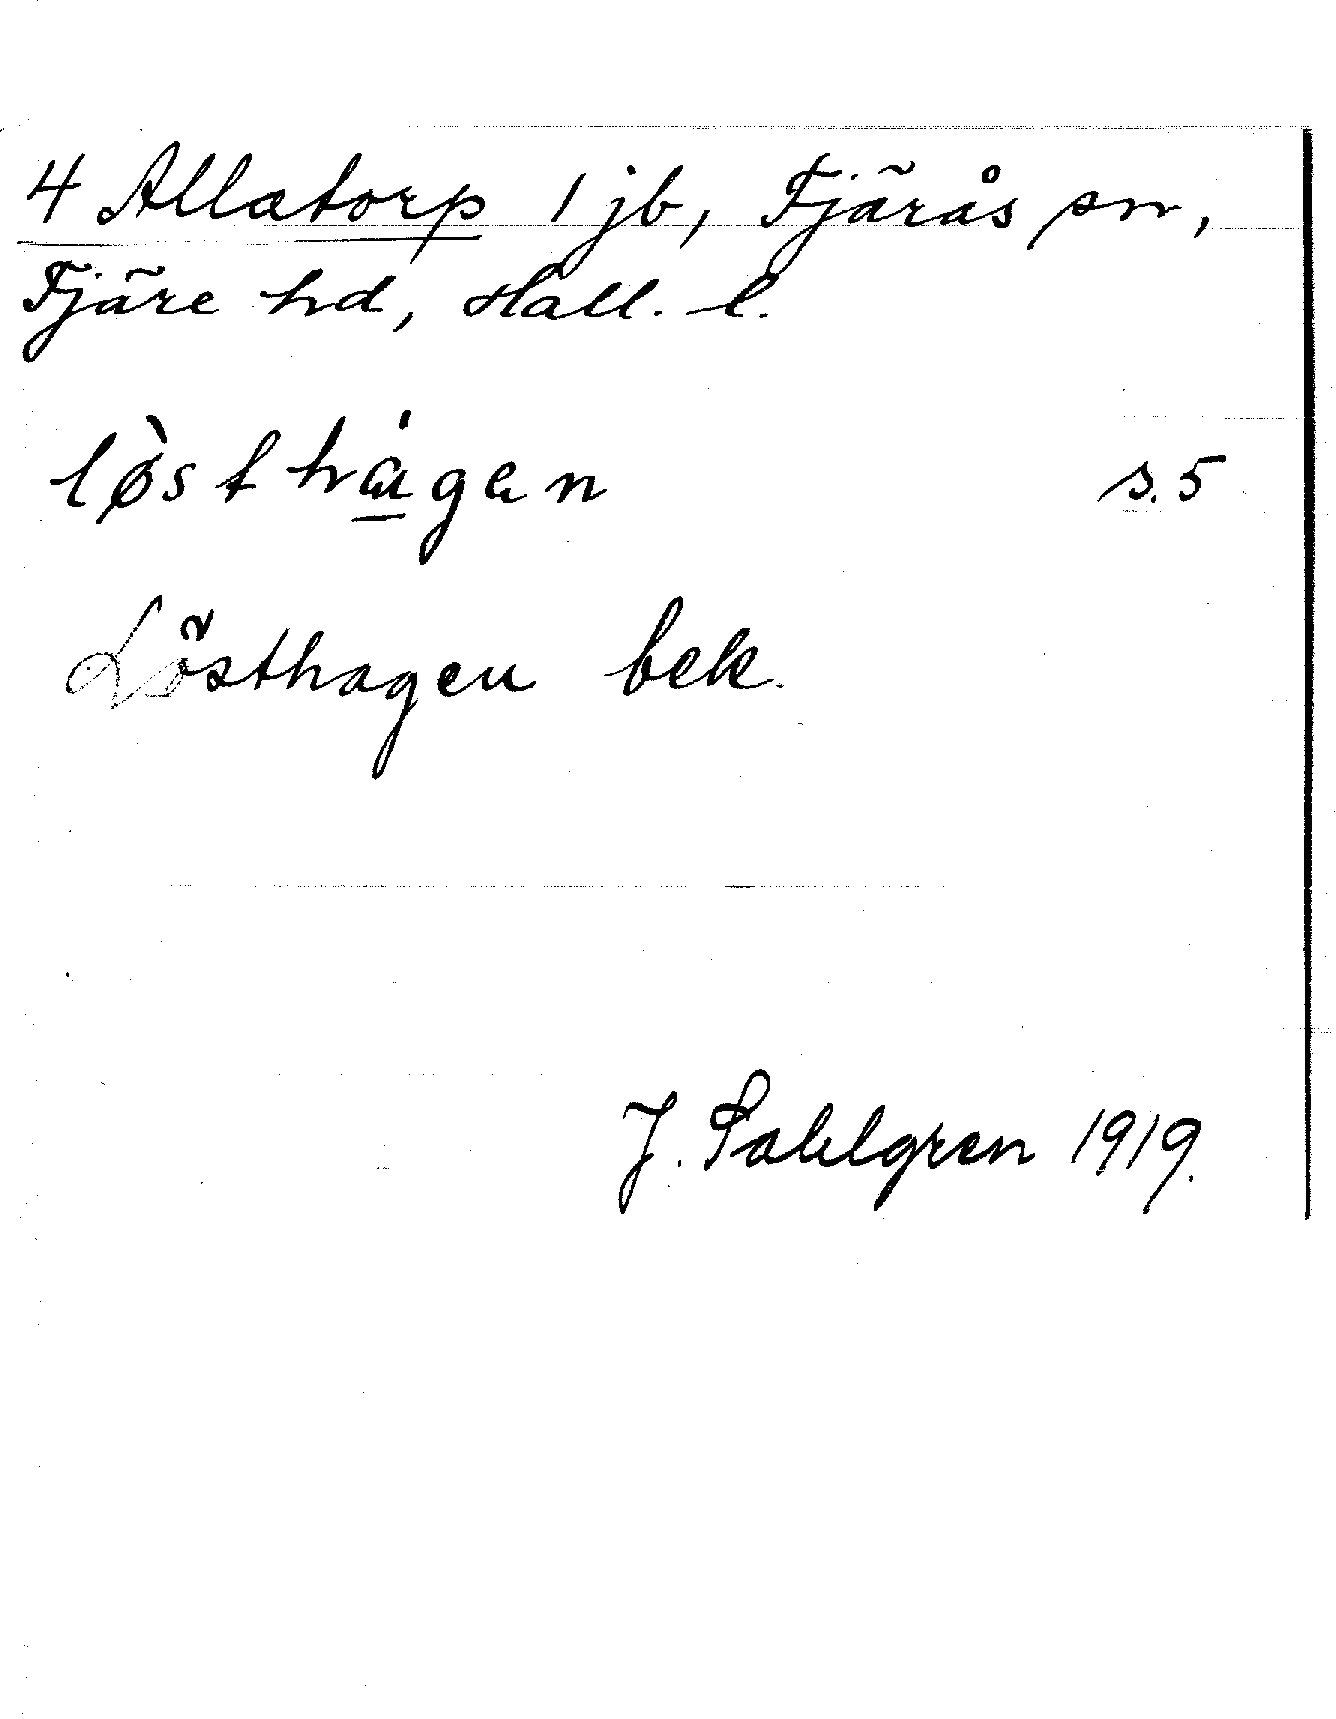 4 Allatorp 1 jb, Fjärås sn,
Fjäre hd, Hall. l.
lø̀sthá̱gen s.5
Lösthagen bek.
J. Sahlgren 1919.